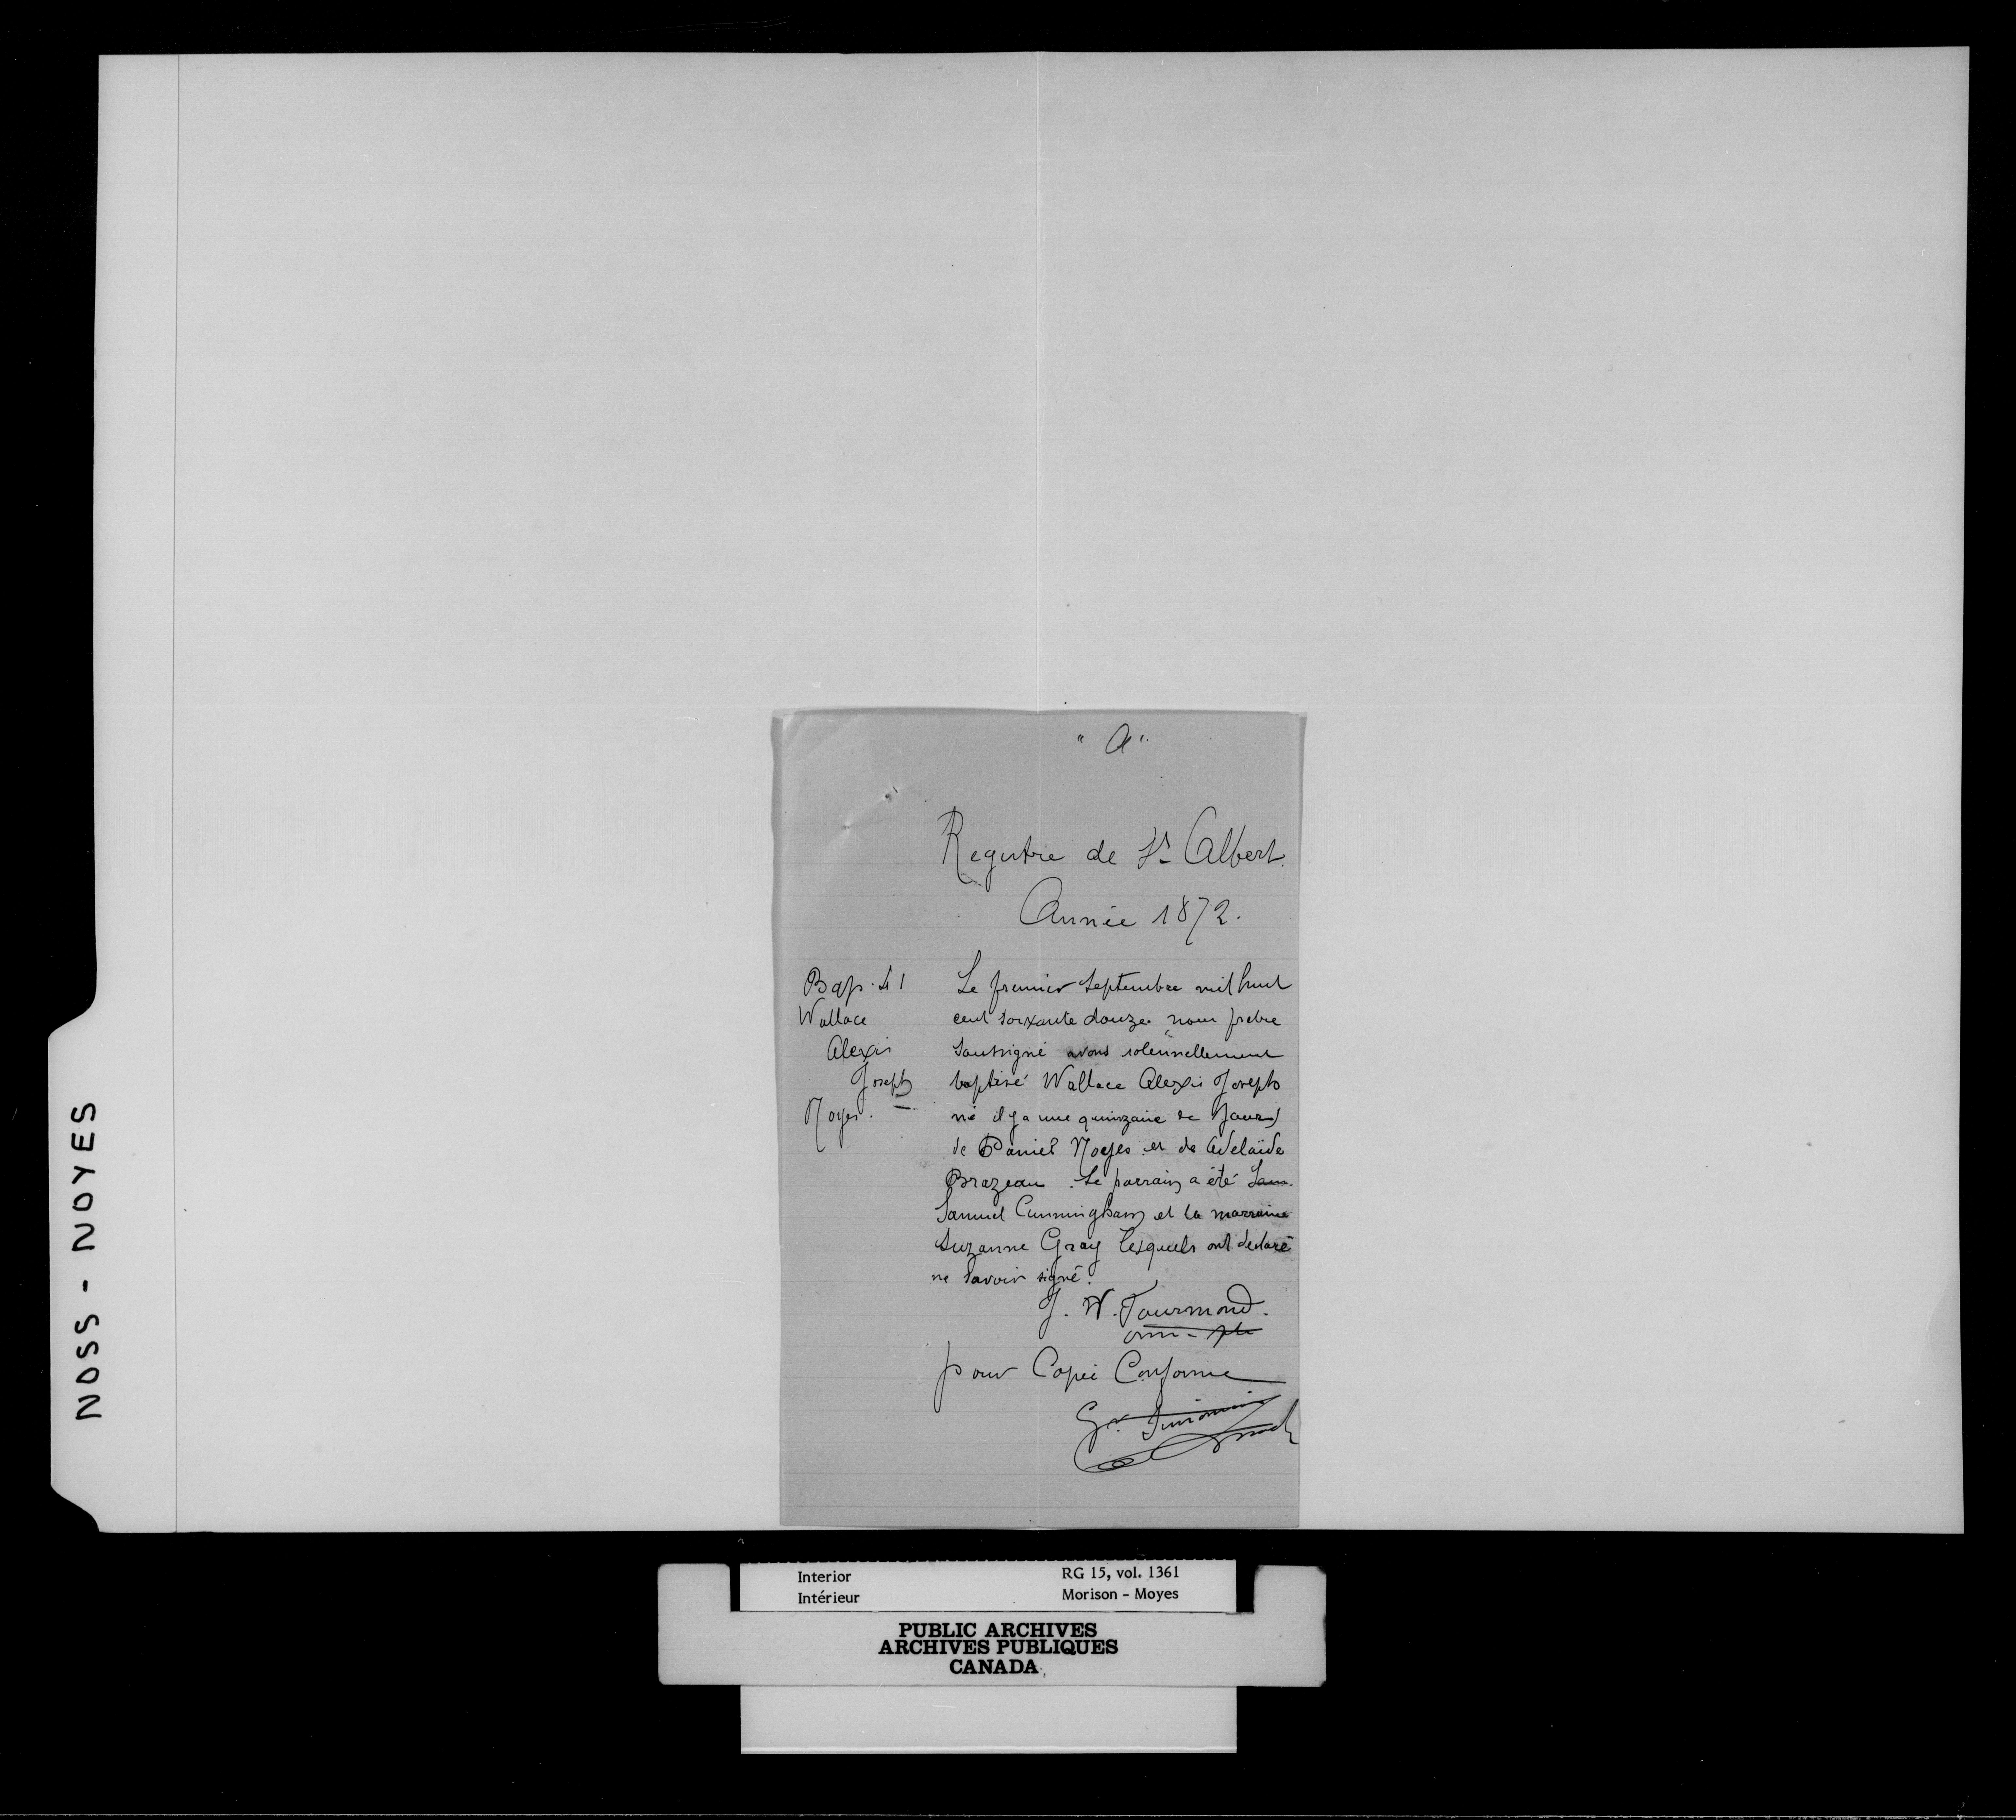 NOSS - NOYES
"A"
Registre de St Albert.
Année 1872.
Bap. 41
Wallace
Alexis
Joseph
Noyes.
Le premier Septembre mil huit
cent soixante douze nous prêtre
soussigné avons solennellement
baptisé Wallace Alexis Joseph
né il y a une quinzaine de Jours
de Daniel Noyes et de Adelaïde
Brazeau. Le parrain a été Sam.
Samuel Cunningham et la marraine
Suzanne Gray lesquels ont declaré
ne savoir signé.
J. W. Tourmond.
omi - ptr
pour Copie Conforme
Interior
Intérieur
RG 15, vol. 1361
Morison - Moyes
PUBLIC ARCHIVES
ARCHIVES PUBLIQUES
CANADA